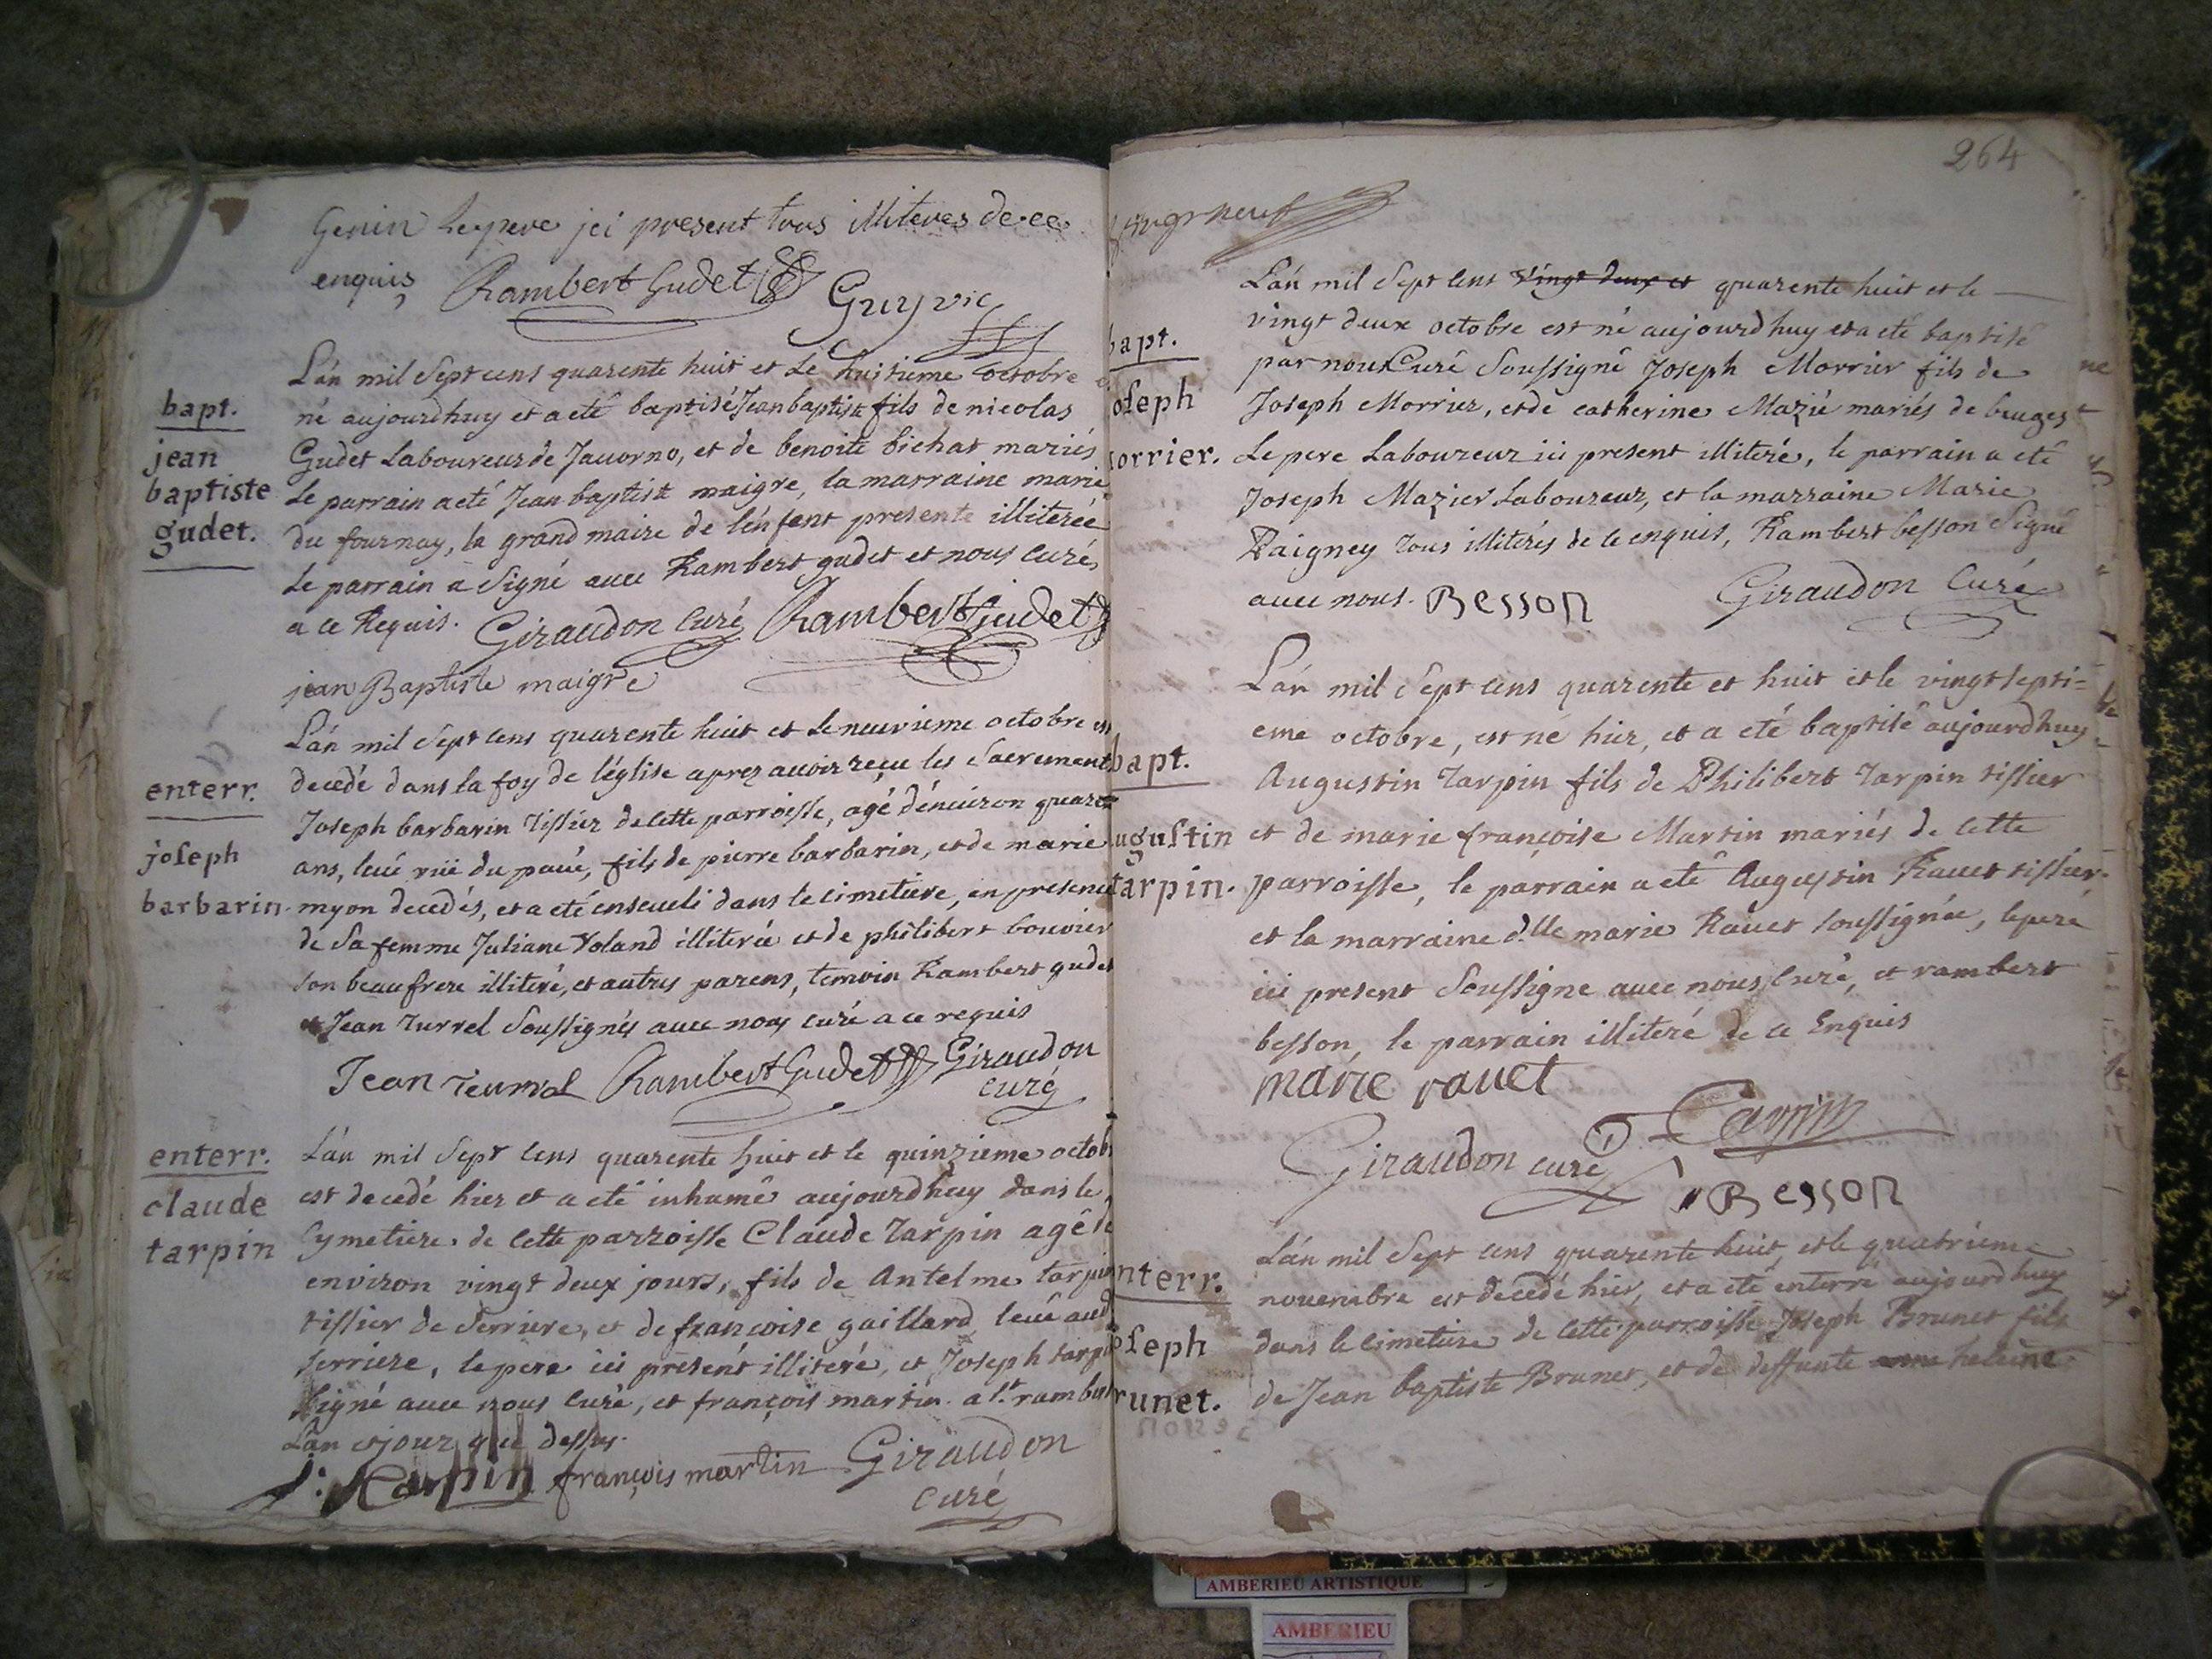 Genin Le pere jci present tous illiteres de ce
enquis Rambert Gudet Guy vic
L'an mil Sept cens quarente huit et Le huitieme octobre
né aujourdhuy et a eté baptisé Jean baptiste fils de nicolas
Gudet Laboureur de Jauorno, et de benoite bichat mariés
Le parrain a eté Jean baptiste maigre, la marraine marie
du fournay, la grand maire de l'enfant presente illiterée
Le parrain a Signé avec Rambert gudet et nous curés
a ce Requis. Giraudon Curé Rambert Gudet
jean Baptiste maigre
bapt.
jean
baptiste
gudet.
L'an mil Sept cens quarente huit et Le neuvieme octobre est
decedé dans la foy de l'église aprez avoir reçu les Sacrements
Joseph barbarin Tissier de cette parroisse, agé d'enuiron quarente
ans, leué rüe du paué, fils de pierre barbarin, et de marie
myon decedés, et a eté enseueli dans le cimetiere, en presence
de Sa femme Juliane Voland illiterée et de philibert bouvier
son beaufrere illiteré, et autres parens, temoin Rambert gudet
et Jean Turrel Soussignés avec nous curé a ce requis
Jean Rambert Gudet Giraudon
curé
enterr.
joseph
barbarin.
L'an mil Sept cens quarente huit et le quinzieme octob
est decedé hier et a eté inhumé aujourdhuy dans le
Cymetiere de cette parroisse Claude Tarpin agé de
environ vingt deux jours, fils de Antelme tarpin
tissier de Serriere, et de francoise gaillard leué aud
serriere, le pere ici present illiteré, et Joseph tarpi
Signé avec nous Curé, et françois martin. a st. rambert
L'an et jour que dessus.
J: tarpin françois martin Giraudon
curé
enterr.
claude
tarpin
264
L'an mil Sept cens vingt deux et quarente huit et le
vingt deux octobre est né aujourdhuy et a eté baptisé
par nous Curé Soussigné Joseph Morrier fils de
Joseph Morrier, et de catherine Mazié mariés de bruges
Le pere Laboureur ici present illiteré, le parrain a eté
Joseph Mazier Laboureur, et la marraine Marie
Raigney tous illiterés de ce enquis, Rambert besson Signé
avec nous. Besson Giraudon Curé
bapt.
oseph
orrier.
L'an mil Sept cens quarente et huit et le vingt septi=
eme octobre, est né hier, et a eté baptisé aujourdhuy
Augustin Tarpin fils de Philibert Tarpin tissier
et de marie françoise Martin mariés de Cette
parroisse, le parrain a eté Augustin Rauet tissier.
et la marraine d.lle marie Rauet soussignée, le pere
ici present Soussigne avec nous Curé, et rambert
besson, le parrain illiteré de ce Enquis
marie rauet
Tarpin
Giraudon curé
Besson
bapt.
ugustin
tarpin.
L'an mil Sept cens quarente huit, et le quatrieme
novembre est decedé hier, et a eté enterré aujourdhuy
dans le cimetiere de Cette parroisse Joseph Brunet fils
de Jean baptiste Brunet, et de deffunte heleine
nterr.
oseph
runet.
AMBERIEU ARTISTIQUE
AMBERIEU